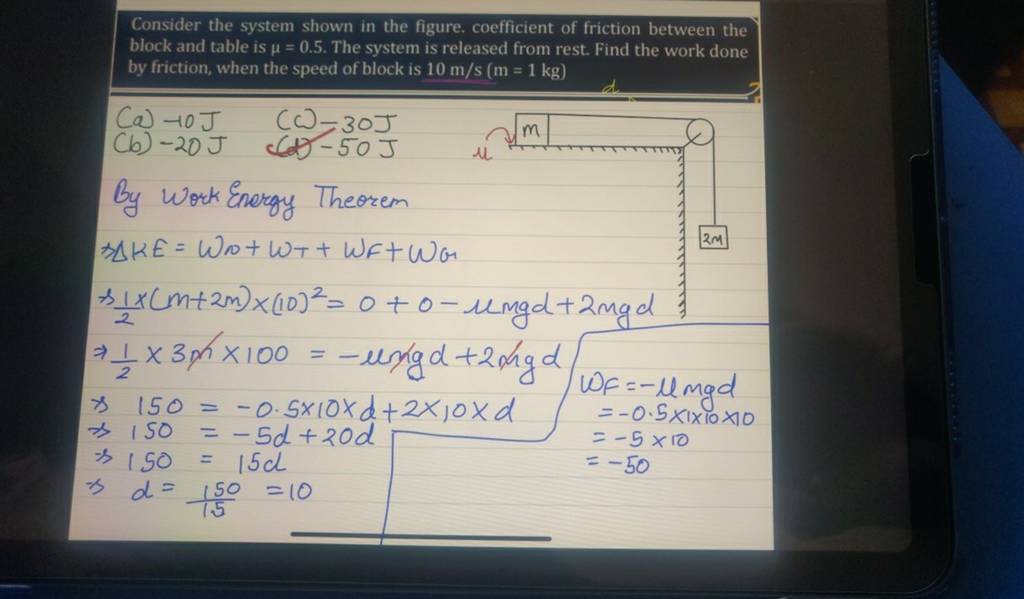 Consider the system shown in the figure. coefficient of friction between the
block and table is μ = 0.5. The system is released from rest. Find the work done
by friction, when the speed of block is 10 m/s (m = 1 kg)
d
(a) -10J (c) -30J
(b) -20J (d) -50J
μ
m
2M
By Work Energy Theorem
⇒ ΔKE = WN + WT + WF + WG
⇒ 1/2 × (m+2m) × (10)² = 0 + 0 - μmgd + 2mgd
⇒ 1/2 × 3m × 100 = -μmgd + 2mgd
⇒ 150 = -0.5×10×d + 2×10×d
⇒ 150 = -5d + 20d
⇒ 150 = 15d
⇒ d = 150/15 = 10
WF = -μmgd
= -0.5×1×10×10
= -5×10
= -50